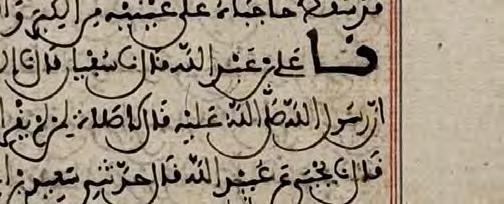 حاجباه على عينيه من الكبر
نا علي بن عبد الله قال نا سفيان قال نا
ان رسول الله صلى الله عليه قال لا صلاة لمن لم يقرا
قال نا يحيى عن عبيد الله قال حدثني سعيد بن ا